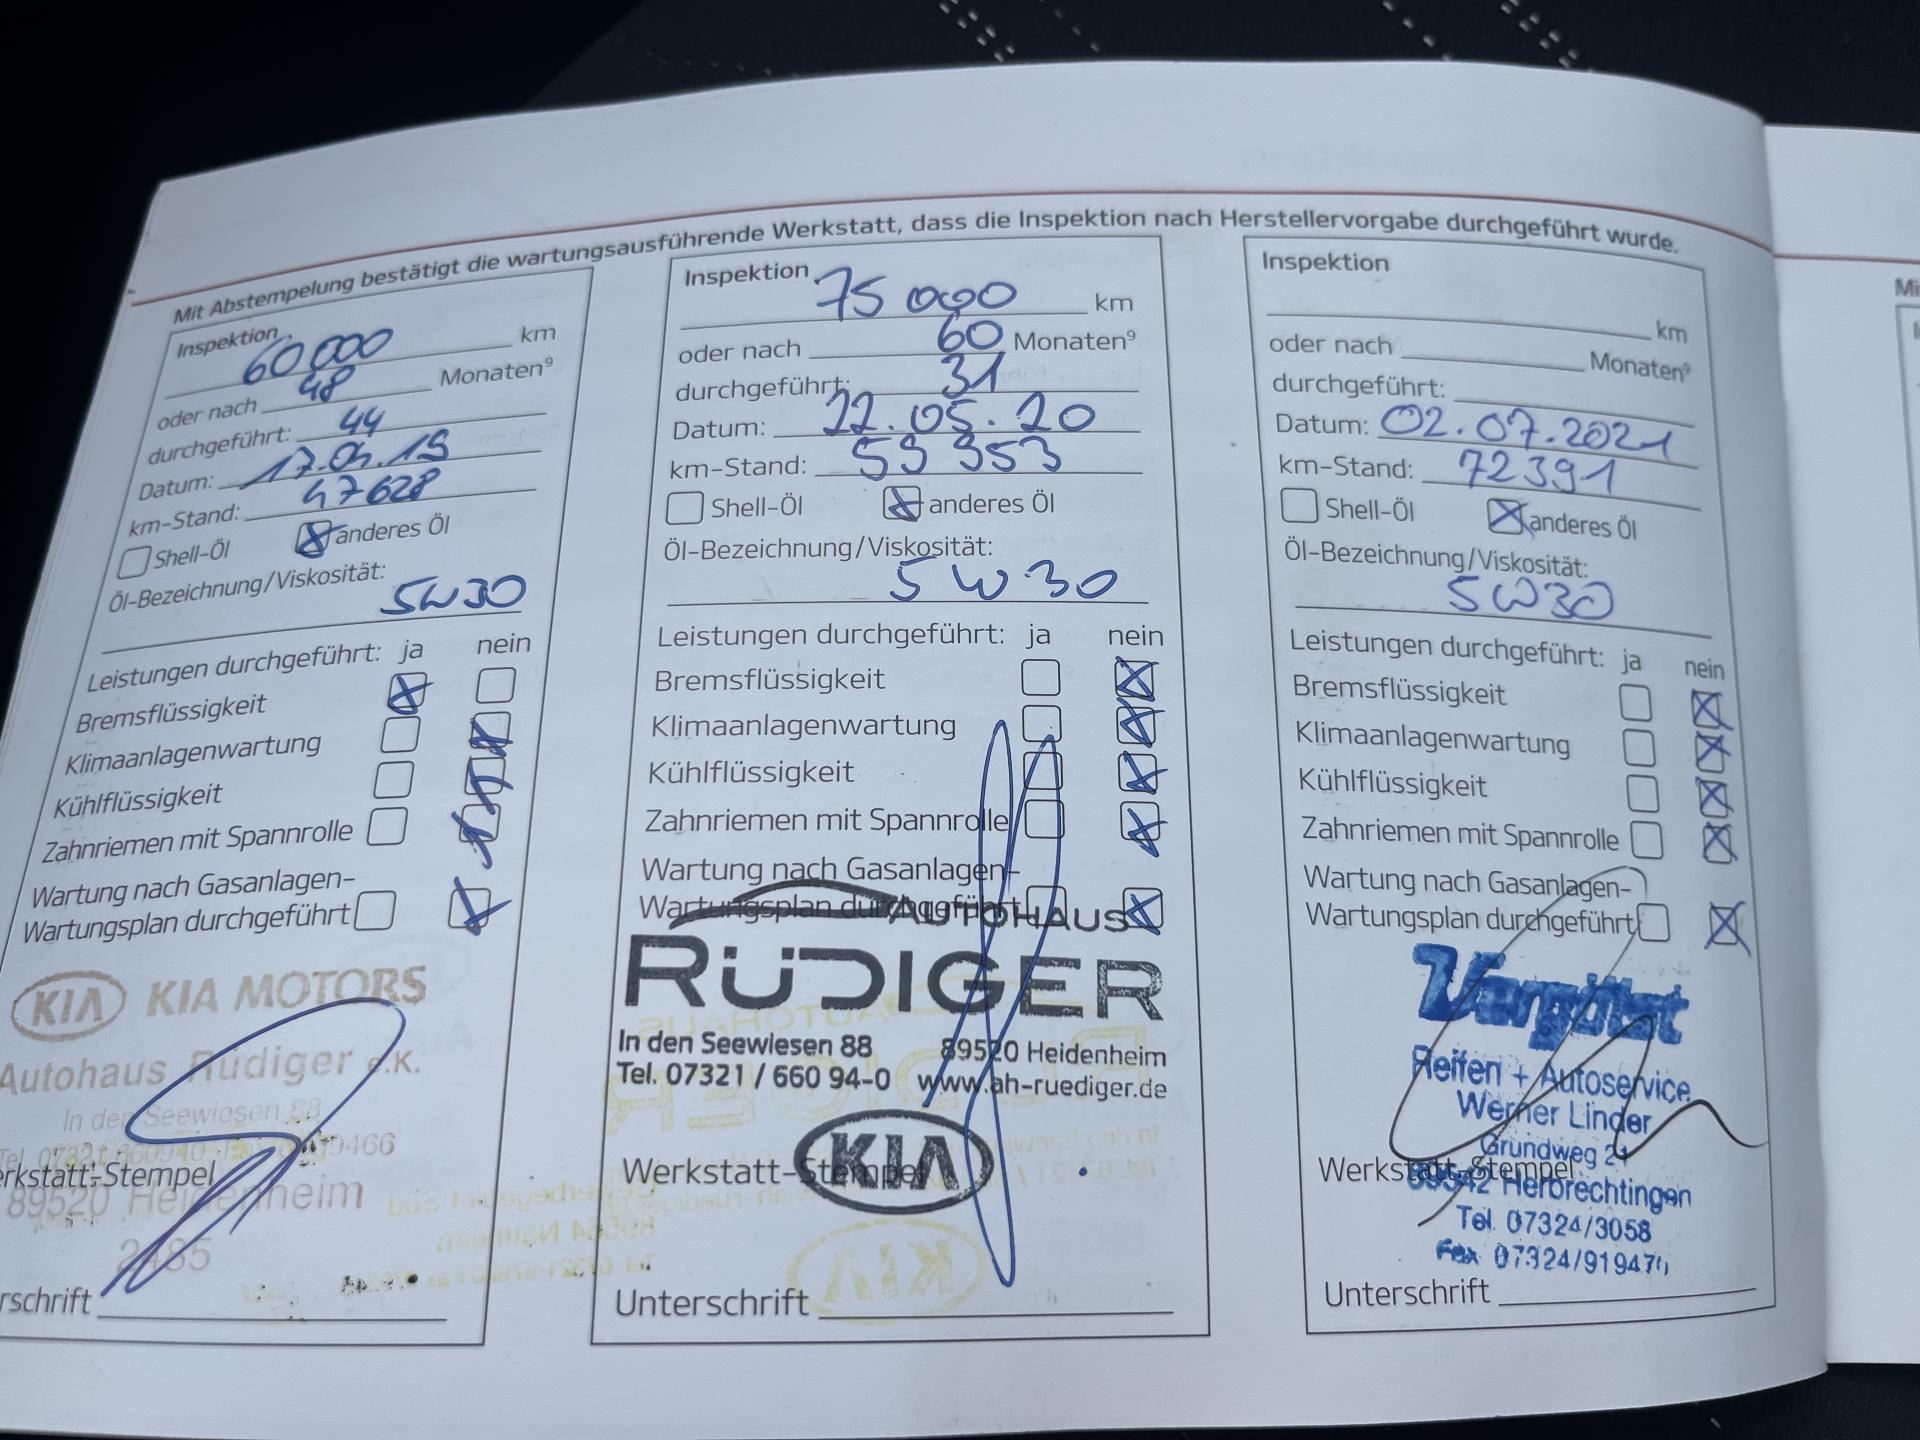 Mit Abstempelung bestätigt die wartungsausführende Werkstatt, dass die Inspektion nach Herstellervorgabe durchgeführt wurde.
Inspektion 60 000 km
oder nach 48 Monaten⁹
durchgeführt: 44
Datum: 17.04.19
km-Stand: 47628
Shell-Öl anderes Öl
Öl-Bezeichnung/Viskosität:
5W30
Leistungen durchgeführt: ja nein
Bremsflüssigkeit
Klimaanlagenwartung
Kühlflüssigkeit
Zahnriemen mit Spannrolle
Wartung nach Gasanlagen-
Wartungsplan durchgeführt
KIA KIA MOTORS
Autohaus Rüdiger e.K.
In den Seewiesen 88
89520 Heidenheim
2485
Inspektion 75 000 km
oder nach 60 Monaten⁹
durchgeführt: 31
Datum: 22.05.20
km-Stand: 59 953
Shell-Öl anderes Öl
Öl-Bezeichnung/Viskosität:
5W30
Leistungen durchgeführt: ja nein
Bremsflüssigkeit
Klimaanlagenwartung
Kühlflüssigkeit
Zahnriemen mit Spannrolle
Wartung nach Gasanlagen-
Wartungsplan durchgeführt
AUTOHAUS
RÜDIGER
In den Seewiesen 88 89520 Heidenheim
Tel. 07321 / 660 94-0 www.ah-ruediger.de
KIA
Werkstatt-Stempel
Unterschrift
Inspektion
km
oder nach Monaten⁹
durchgeführt:
Datum: 02.07.2021
km-Stand: 72391
Shell-Öl anderes Öl
Öl-Bezeichnung/Viskosität:
5W30
Leistungen durchgeführt: ja nein
Bremsflüssigkeit
Klimaanlagenwartung
Kühlflüssigkeit
Zahnriemen mit Spannrolle
Wartung nach Gasanlagen-
Wartungsplan durchgeführt
Vergölst
Reifen + Autoservice
Werner Linder
Grundweg 21
89542 Herbrechtingen
Werkstatt-Stempel
Tel. 07324/3058
Fax 07324/919470
Unterschrift